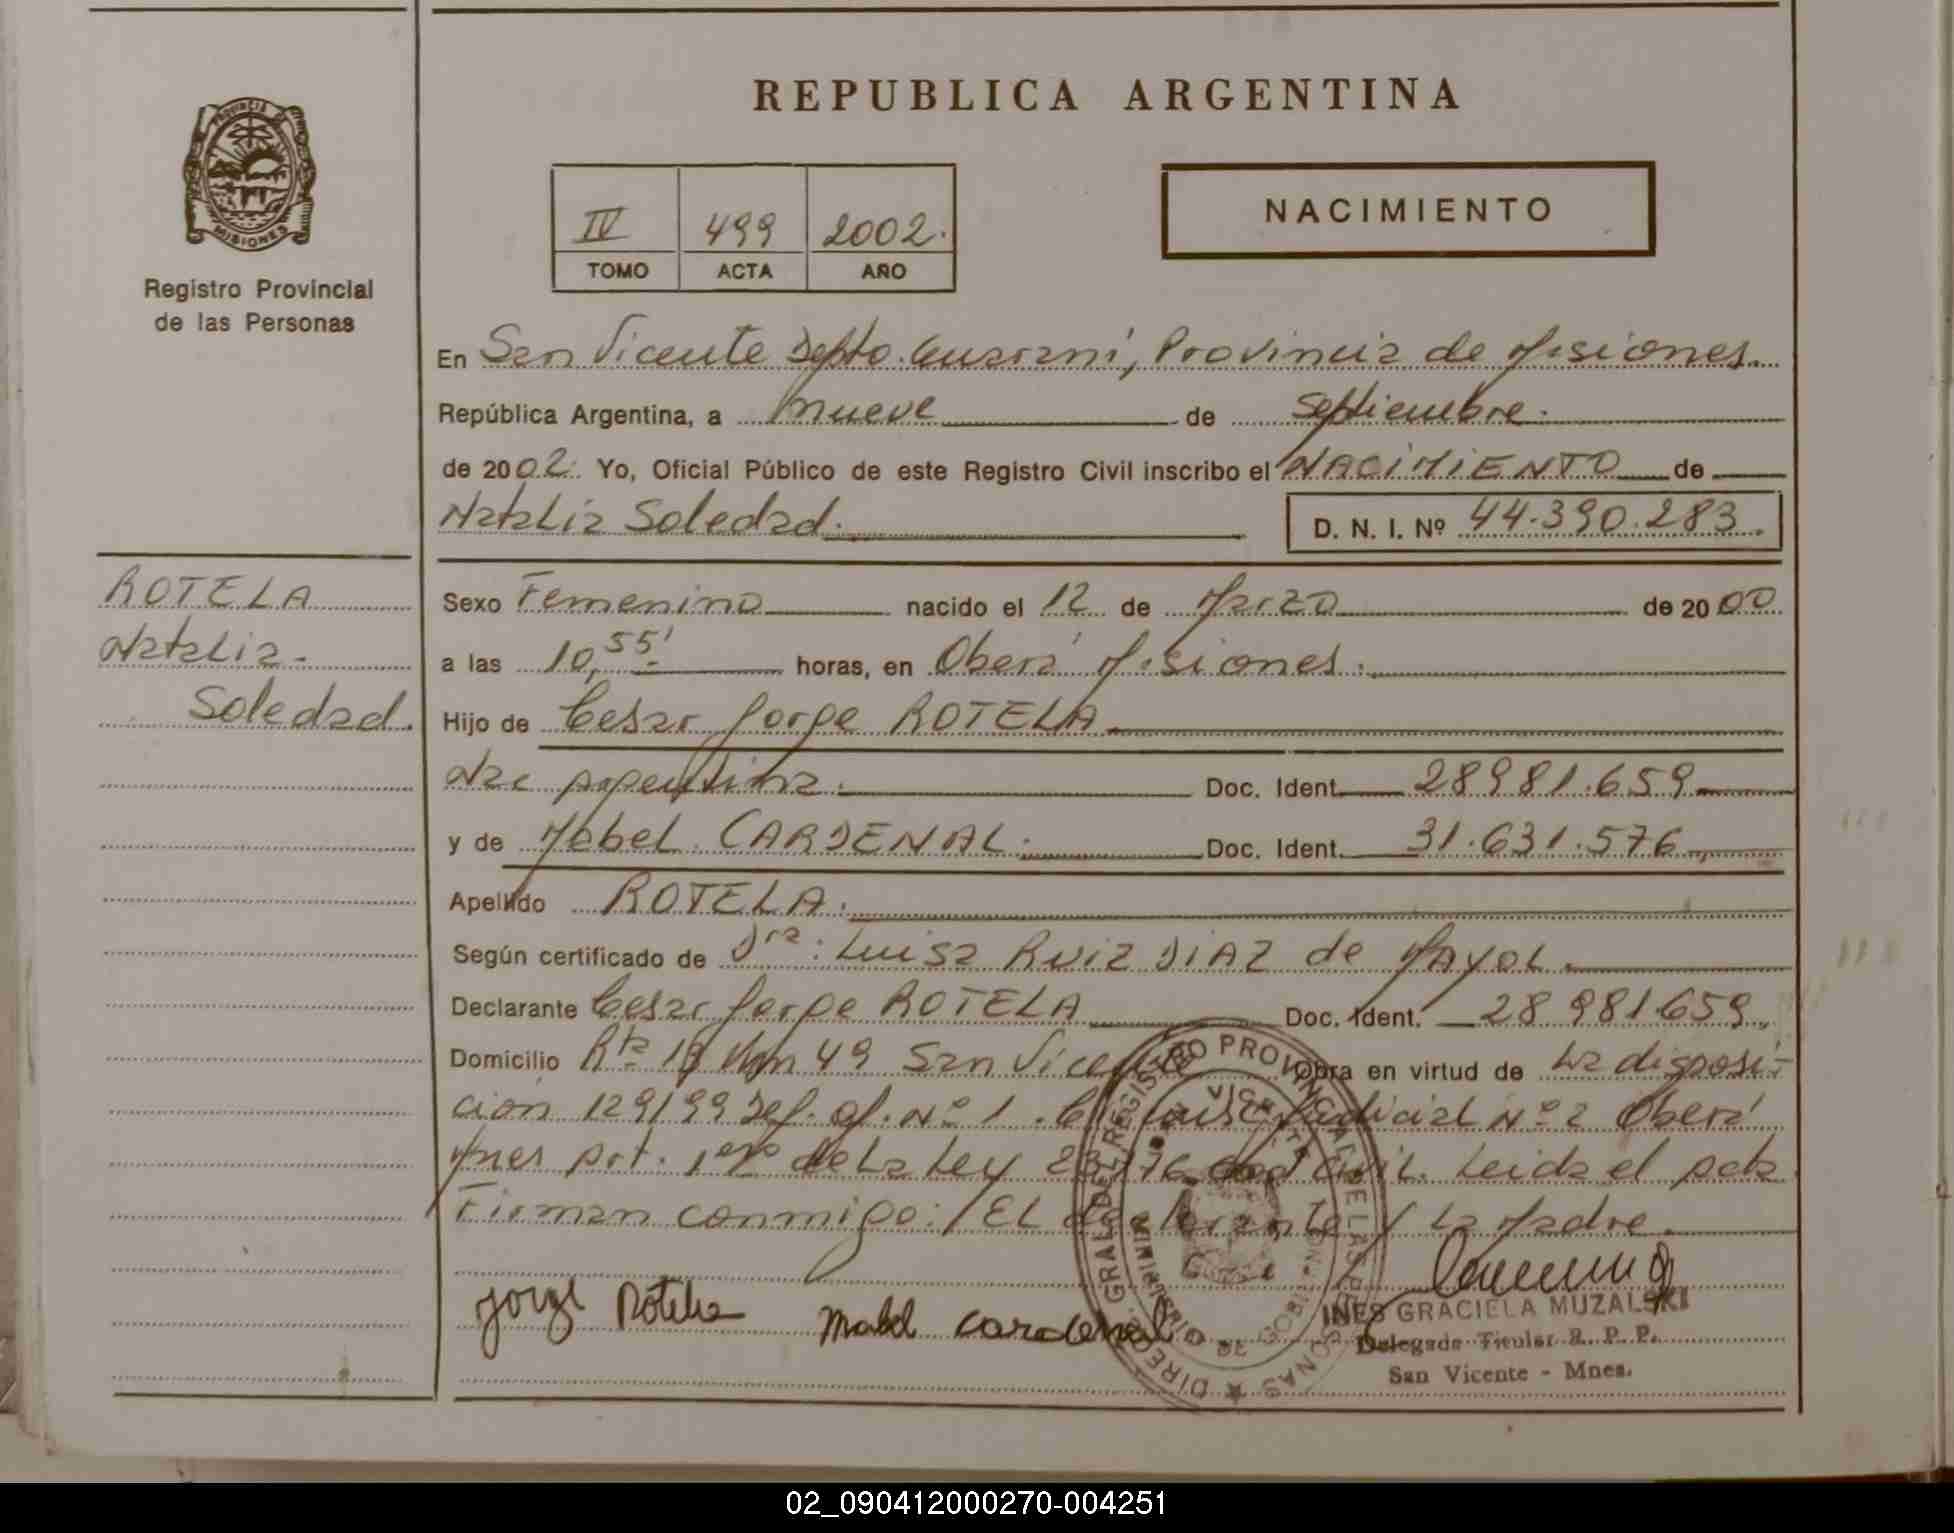 REPUBLICA ARGENTINA
PROVINCIA DE
MISIONES
Registro Provincial
de las Personas
IV 499 2002.
TOMO ACTA AÑO
NACIMIENTO
En San Vicente Depto. Guaraní, Provincia de Misiones.
República Argentina, a nueve de Septiembre.
de 2002. Yo, Oficial Público de este Registro Civil inscribo el NACIMIENTO de
Natalia Soledad. D. N. I. Nº 44.390.283.
ROTELA
Natalia.
Soledad.
Sexo Femenino nacido el 12 de Marzo de 2000
a las 10,55' horas, en Oberá Misiones.
Hijo de Cesar Jorge ROTELA
Nac Argentina. Doc. Ident. 28981.659
y de Mabel CARDENAL. Doc. Ident. 31.631.576
Apellido ROTELA.
Según certificado de Dra. Luisa RUIZ DIAZ de MAYOL.
Declarante Cesar Jorge ROTELA Doc. Ident. 28 981.659.
Domicilio Rta 13 Km 49 San Vicente Obra en virtud de La disposi-
ción 129/99 Def. of. Nº 1. Judicial Nº 2 Oberá
Mnes Art. 1ero de La Ley Civil. Leida el Acta
Firman conmigo: EL declarante Y La Madre.
Jorge Rotela Mabel Cardenal
DIREC. GRAL. DEL REGISTRO PROVINCIAL DE LAS PERSONAS
INES GRACIELA MUZALSKI
Delegada Titular R. P. P.
San Vicente - Mnes.
02_090412000270-004251